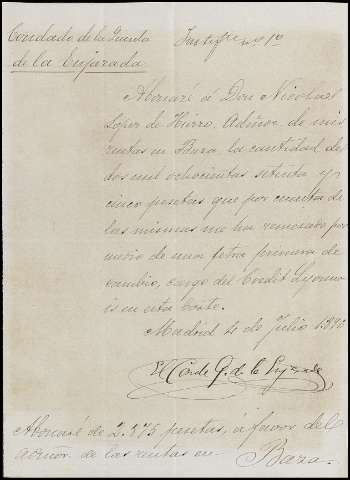 Condado de la Puerta
de la Enjarada
Justifte nº 1º
Abonaré á Don Nicolas
Lopez de Hierro, Admor. de mis
rentas en Baza, la cantidad de
dos mil ochocientas setenta y
cinco pesetas que por cuenta de
las mismas me ha remesado por
medio de una letra primera de
cambio, cargo del Credit Lyonna
is en esta corte.
Madrid 4 de Julio
El Conde G. de la
Abonaré de 2.875 pesetas, á favor del
admor. de las rentas en Baza.